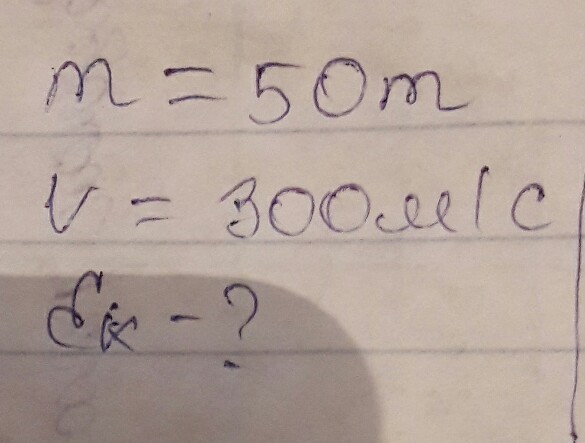 m = 50т
v = 300м/с
Eк - ?